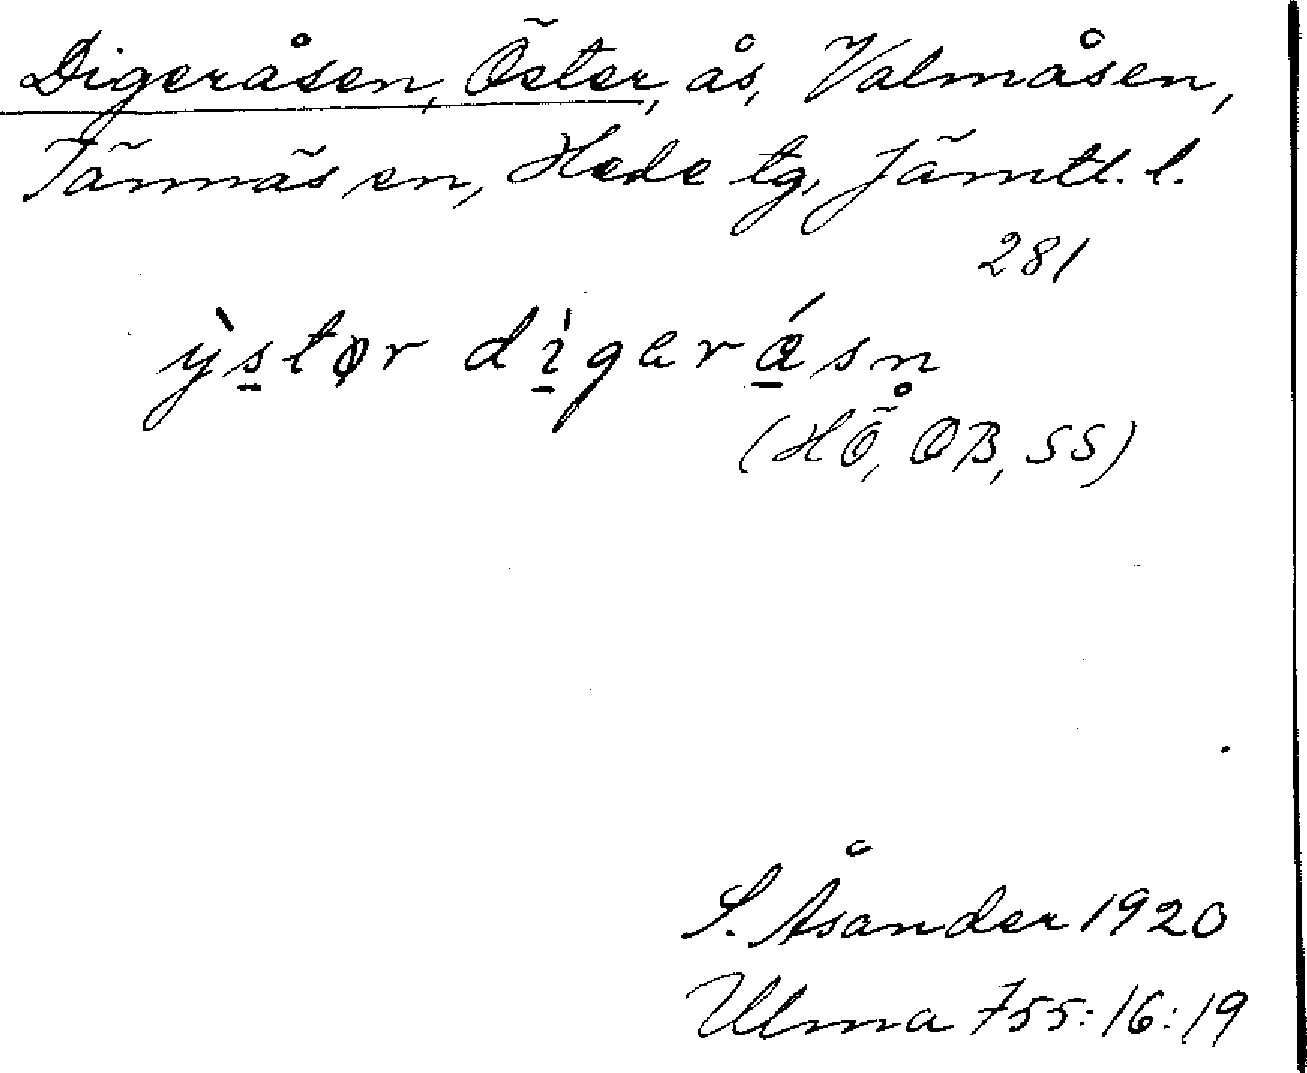 Digeråsen, Öster, ås, Valmåsen,
Tännäs sn, Hede tg, Jämtl. l.
281
ỳstør dìgeråsn
(HÖ, OB, SS)
S. Åsander 1920
Ulma 755:16:19